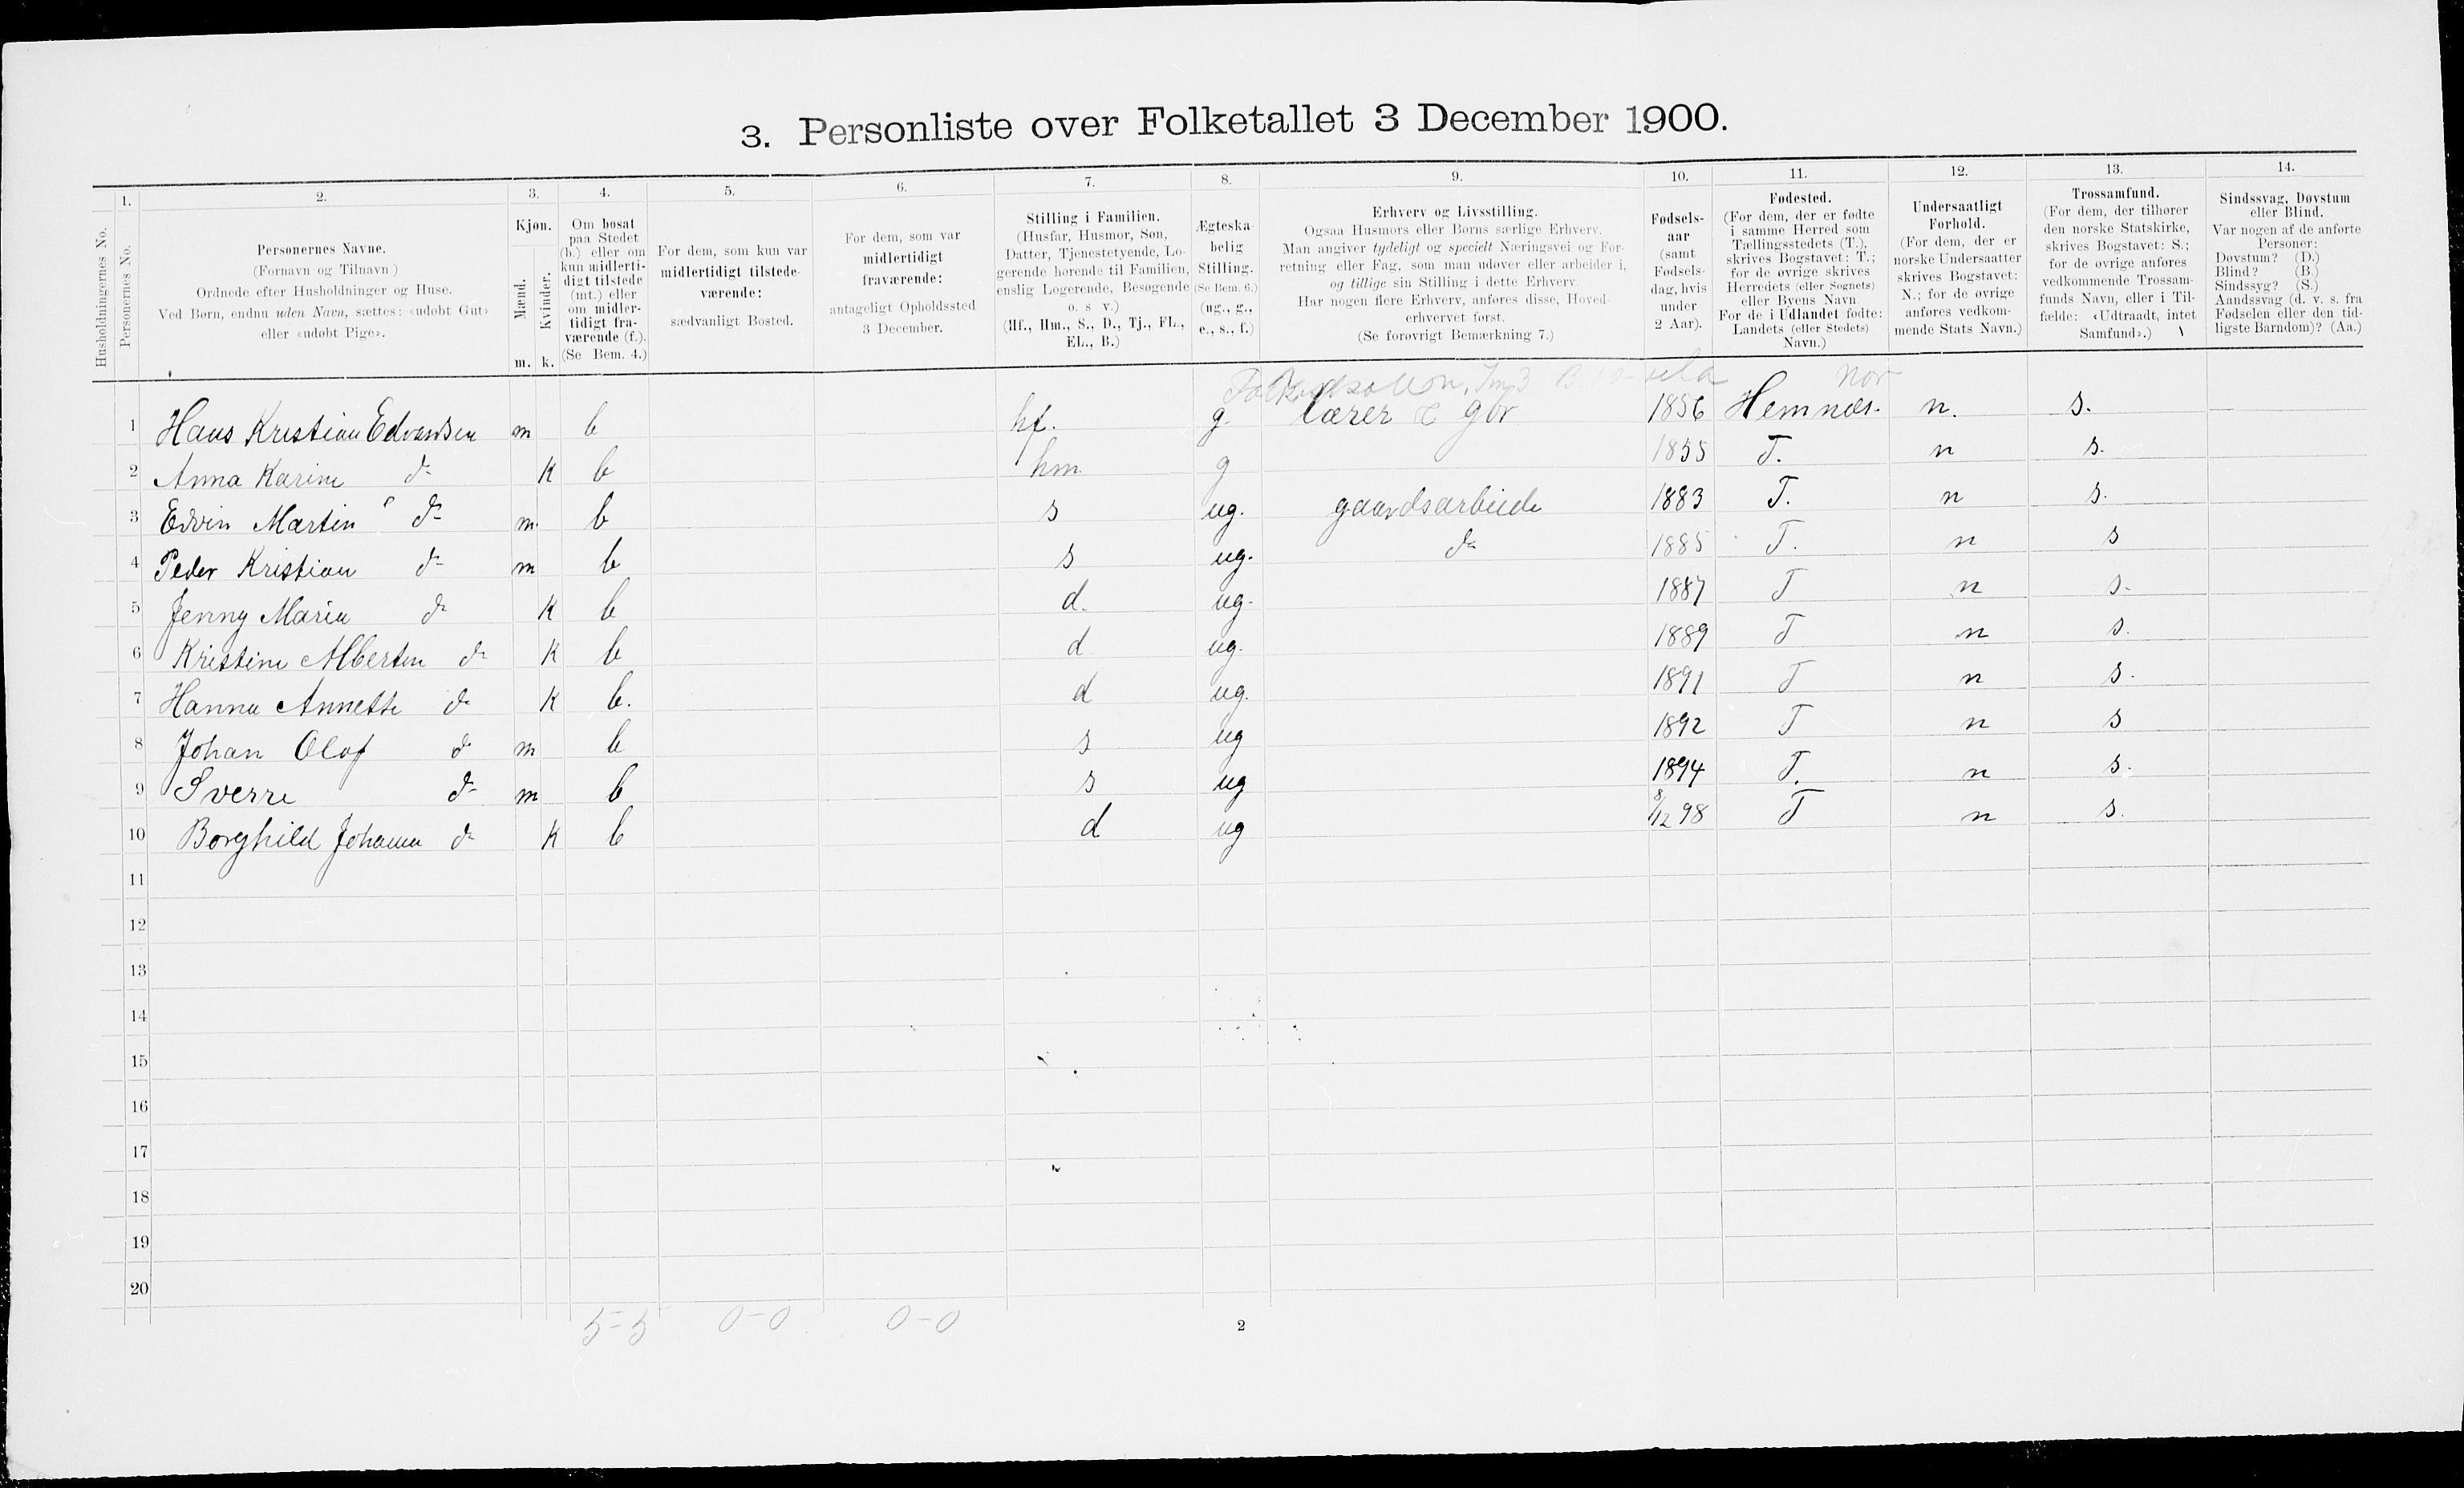 3. Personliste over Folketallet 3 December 1900.
Husholdningernes No.
1. Personernes No.
2. Personernes Navne.
(Fornavn og Tilnavn)
Ordnede efter Husholdninger og Huse.
Ved Børn, endnu uden Navn, sættes: «udøbt Gut»
eller «udøbt Pige».
3. Kjøn.
Mænd. Kvinder.
m. k.
4. Om bosat
paa Stedet
(b.) eller om
kun midlerti-
digt tilstede
(mt.) eller
om midler-
tidigt fra-
værende (f.).
(Se Bem. 4.)
5. For dem, som kun var
midlertidigt tilstede-
værende:
sædvanligt Bosted.
6. For dem, som var
midlertidigt
fraværende:
antageligt Opholdssted
3 December.
7. Stilling i Familien.
(Husfar, Husmor, Søn,
Datter, Tjenestetyende, Lo-
gerende hørende til Familien,
enslig Logerende, Besøgende
o. s v.)
(Hf., Hm., S., D., Tj., FL.,
EL., B.)
8. Ægteska-
belig
Stilling.
(Se Bem. 6.)
(ug., g.,
e., s., f.)
9. Erhverv og Livsstilling.
Ogsaa Husmors eller Børns særlige Erhverv.
Man angiver tydeligt og specielt Næringsvei og For-
retning eller Fag, som man udøver eller arbeider i,
og tillige sin Stilling i dette Erhverv.
Har nogen flere Erhverv, anføres disse, Hoved-
erhvervet først.
(Se forøvrigt Bemærkning 7.)
10. Fødsels-
aar
(samt
Fødsels-
dag, hvis
under
2 Aar).
11. Fødested.
(For dem, der er fødte
i samme Herred som
Tællingsstedets (T.),
skrives Bogstavet: T.;
for de øvrige skrives
Herredets (eller Sognets)
eller Byens Navn
For de i Udlandet fødte:
Landets (eller Stedets)
Navn.)
12. Undersaatligt
Forhold.
(For dem, der er
norske Undersaatter
skrives Bogstavet:
N.; for de øvrige
anføres vedkom-
mende Stats Navn.)
13. Trossamfund.
(For dem, der tilhører
den norske Statskirke,
skrives Bogstavet: S.;
for de øvrige anføres
vedkommende Trossam-
funds Navn, eller i Til-
fælde: «Udtraadt, intet
Samfund».)
14. Sindssvag, Døvstum
eller Blind.
Var nogen af de anførte
Personer:
Døvstum? (D.)
Blind? (B.)
Sindssyg? (S.)
Aandssvag (d. v. s. fra
Fødselen eller den tid-
ligste Barndom)? (Aa.)
Nor
1 Hans Kristian Edvardsen m b hf. g. lærer & gbr 1856 Hemnæs. n. s.
2 Anna Karine do k b hm g 1855 T. n s.
3 Edvin Martin do m. b s ug. gaardsarbeide 1883 T. n s.
4 Peder Kristian do m b s ug. do 1885 T. n s
5 Jenny Maria do k b d. ug. 1887 T n s.
6 Kristine Albertin do k b d ug. 1889 T n s.
7 Hanna Annette do k b. d ug. 1891 T n s.
8 Johan Olaf do m b s ug 1892 T n s
9 Sverre do m b s ug 1894 T. n s.
10 Borghild Johanna do k b d ug 8/12 98 T n s.
11
12
13
14
15
16
17
18
19
20
5-5 0-0 0-0
2